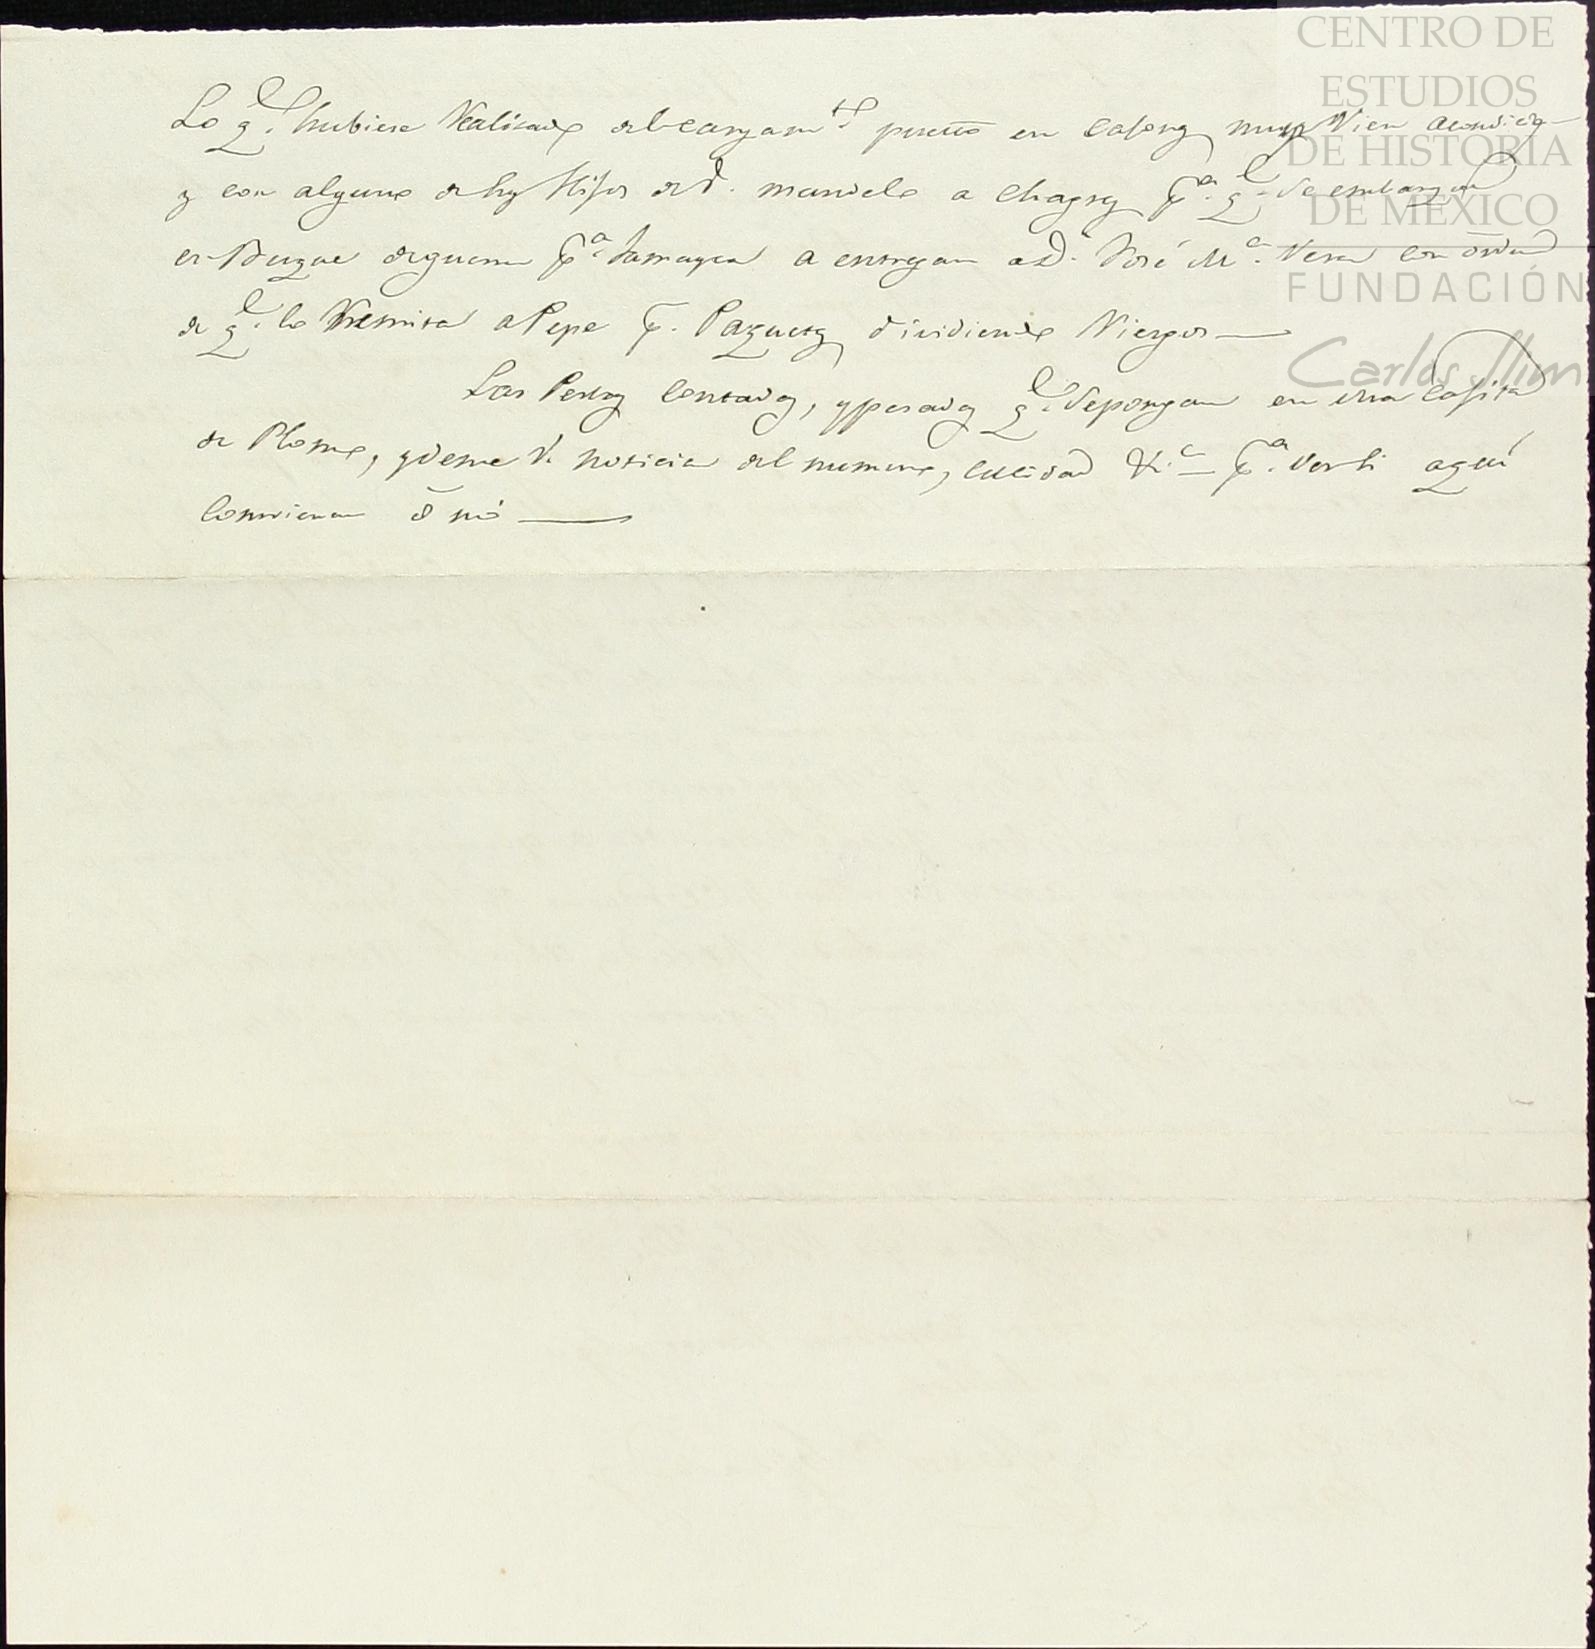 CENTRO DE
ESTUDIOS
DE HISTORIA
DE MÉXICO
FUNDACIÓN
Carlos Slim
Lo q.e hubiese Realisado del cargam.to puesto en Cajong muy Vien
y con alguno de los Hijos de D. Manuel a Chagres p.a q.e Se embarguen
en Buque de guerra p.a Jamayca a entregar a D. José M.a Vera con orden
de q.e lo Remita a Pepe p. Paquetes dividiendo Riesgos
Las Perlas Contadas, y pesadas q.e Se pongan en una Cajita
de Plomo, y deme V. noticia del numero, calidad &.a p.a ver si aquí
combienen ó nó